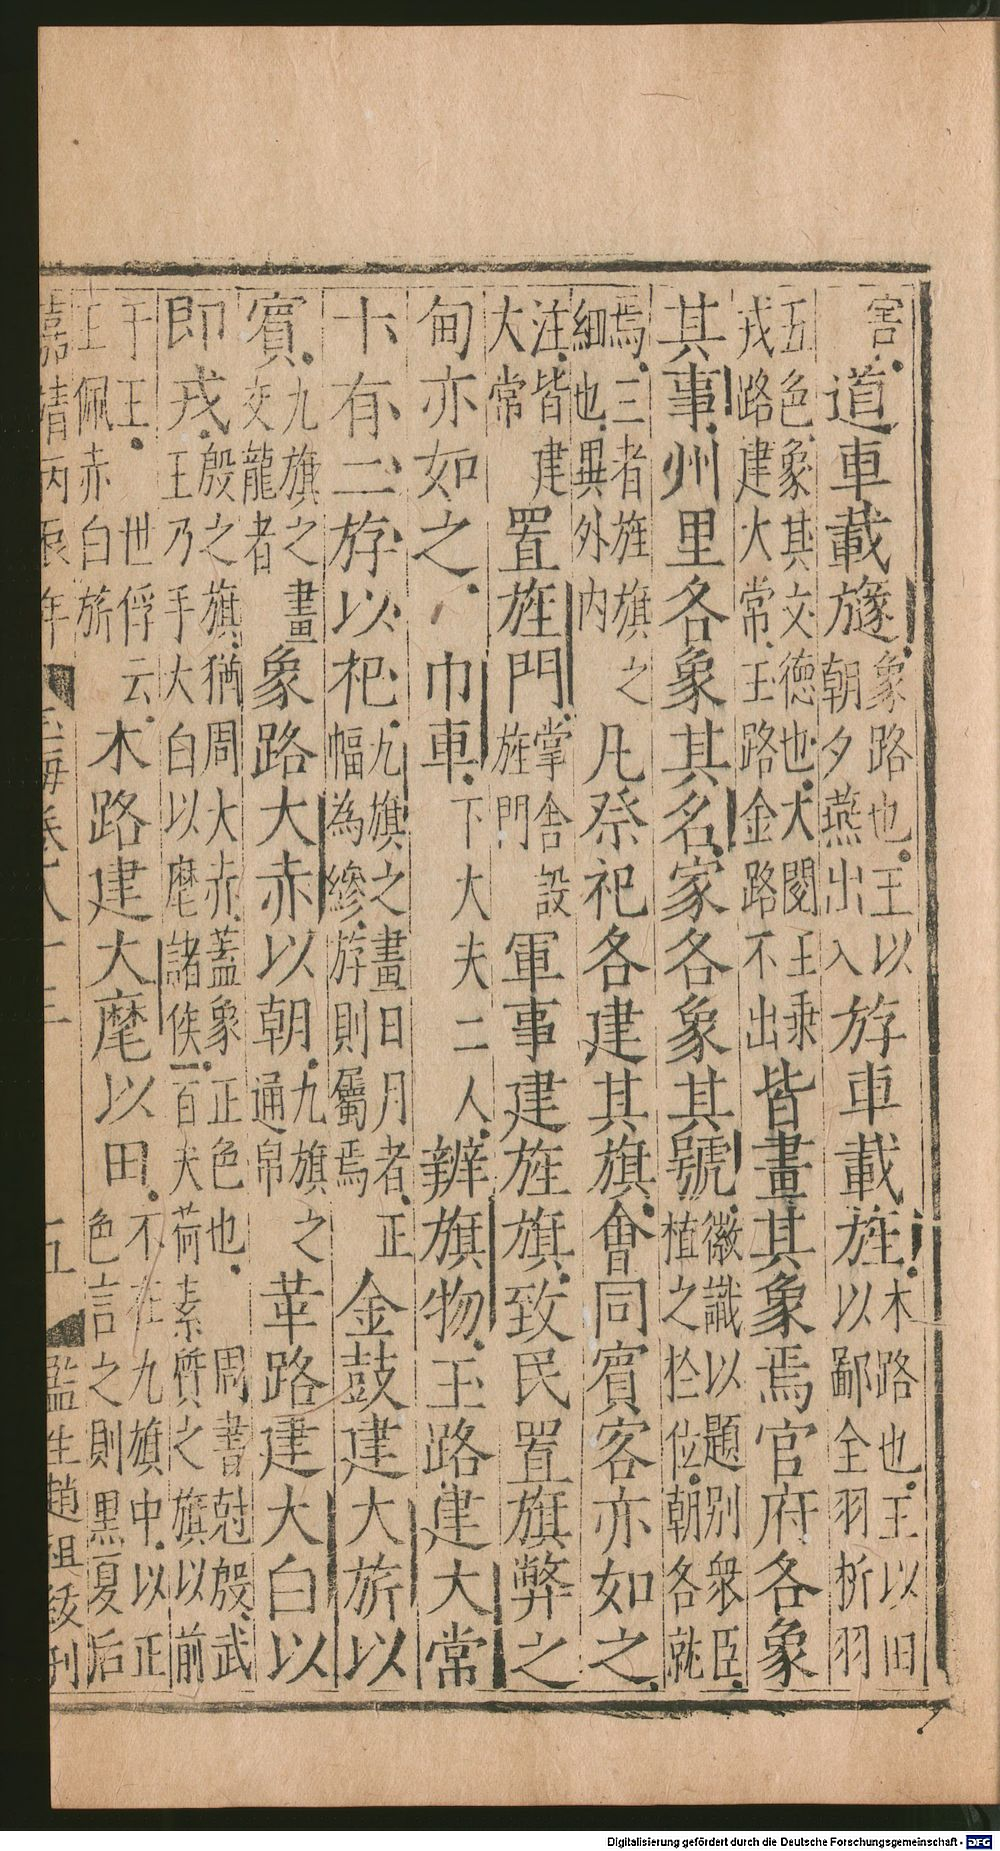 害道車載旞象路也王以朝夕燕出入斿車載旌木路也王以田以鄙全羽析羽
五色象其文德也大閱王乗戎路建大常玉路金路不出皆畫其象焉官府各象
其事州里各象其名家各象其號徽識以題别衆臣植之於位朝各就
焉三者旌旗之細也異外内凡祭祀各建其旗會同賓客亦如之
注皆建大常置旌門掌舍設旌門軍事建旌旗致民置旗弊之
甸亦如之巾車下大夫二人辨旗物王路建大常
十有二斿以祀九旗之畫日月者正幅為縿斿則屬焉金鼓建大旂以
賓九旗之畫交龍者象路大赤以朝九旗之通帛革路建大白以
即戎殷之旗猶周大赤蓋象正色也周書尅殷武王乃手大白以麾諸侯百夫荷素質之旗以前
于王世俘云王佩赤白旂木路建大麾以田不在九旗中以正色言之則黑夏后
嘉靖丙辰年 玉海卷八十三 五 監生趙祖綬刊
Digitalisierung gefördert durch die Deutsche Forschungsgemeinschaft - DFG